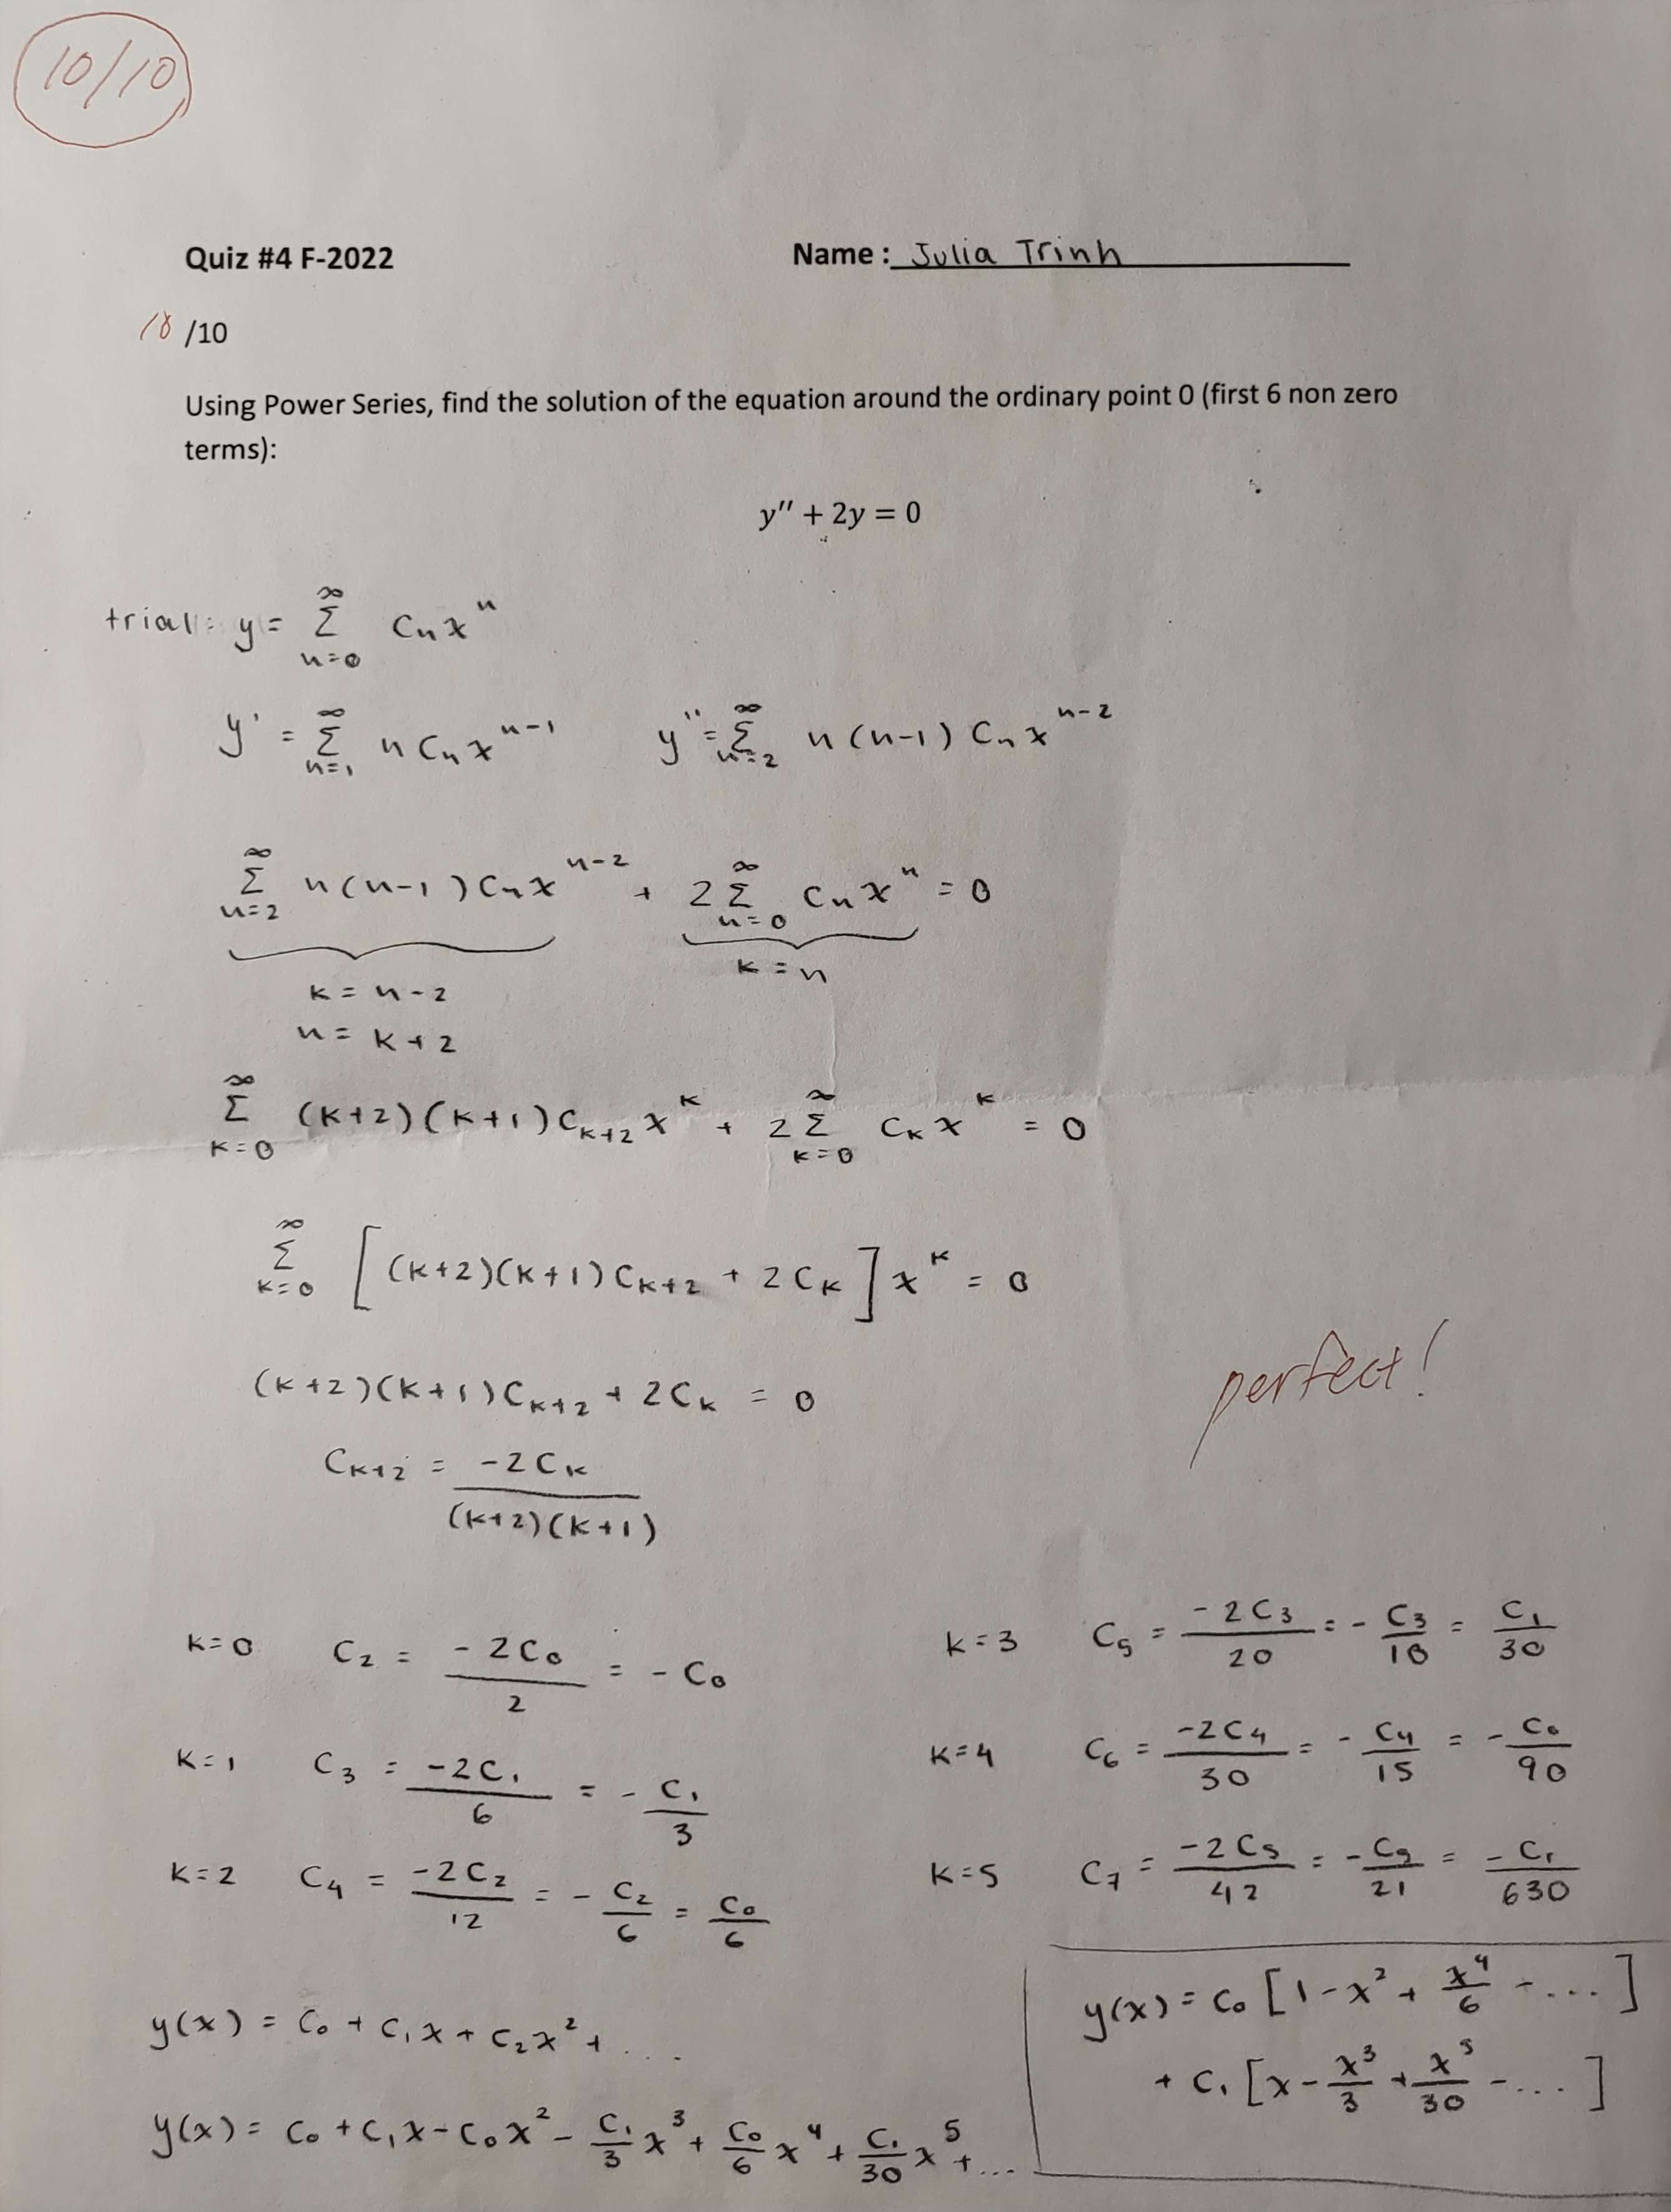 10/10
Quiz #4 F-2022 Name : Julia Trinh
10 /10
Using Power Series, find the solution of the equation around the ordinary point 0 (first 6 non zero
terms):
y'' + 2y = 0
trial: y = ∞ Σ n=0 Cnx^n
y' = ∞ Σ n=1 n Cn x^n-1 y'' = ∞ Σ n=2 n(n-1) Cn x^n-2
∞ Σ n=2 n(n-1) Cn x^n-2 + 2 ∞ Σ n=0 Cn x^n = 0
k = n-2 k = n
n = k+2
∞ Σ k=0 (k+2)(k+1) Ck+2 x^k + 2 ∞ Σ k=0 Ck x^k = 0
∞ Σ k=0 [(k+2)(k+1) Ck+2 + 2Ck] x^k = 0
(k+2)(k+1) Ck+2 + 2Ck = 0
perfect!
Ck+2 = -2Ck / (k+2)(k+1)
k=0 C2 = -2C0/2 = -C0
k=1 C3 = -2C1/6 = -C1/3
k=2 C4 = -2C2/12 = -C2/6 = C0/6
k=3 C5 = -2C3/20 = -C3/10 = C1/30
k=4 C6 = -2C4/30 = -C4/15 = -C0/90
k=5 C7 = -2C5/42 = -C5/21 = -C1/630
y(x) = C0 + C1x + C2x² + ...
y(x) = C0 + C1x - C0x² - C1/3 x³ + C0/6 x⁴ + C1/30 x⁵ + ...
y(x) = C0 [1 - x² + x⁴/6 - ....]
+ C1 [x - x³/3 + x⁵/30 - ....]